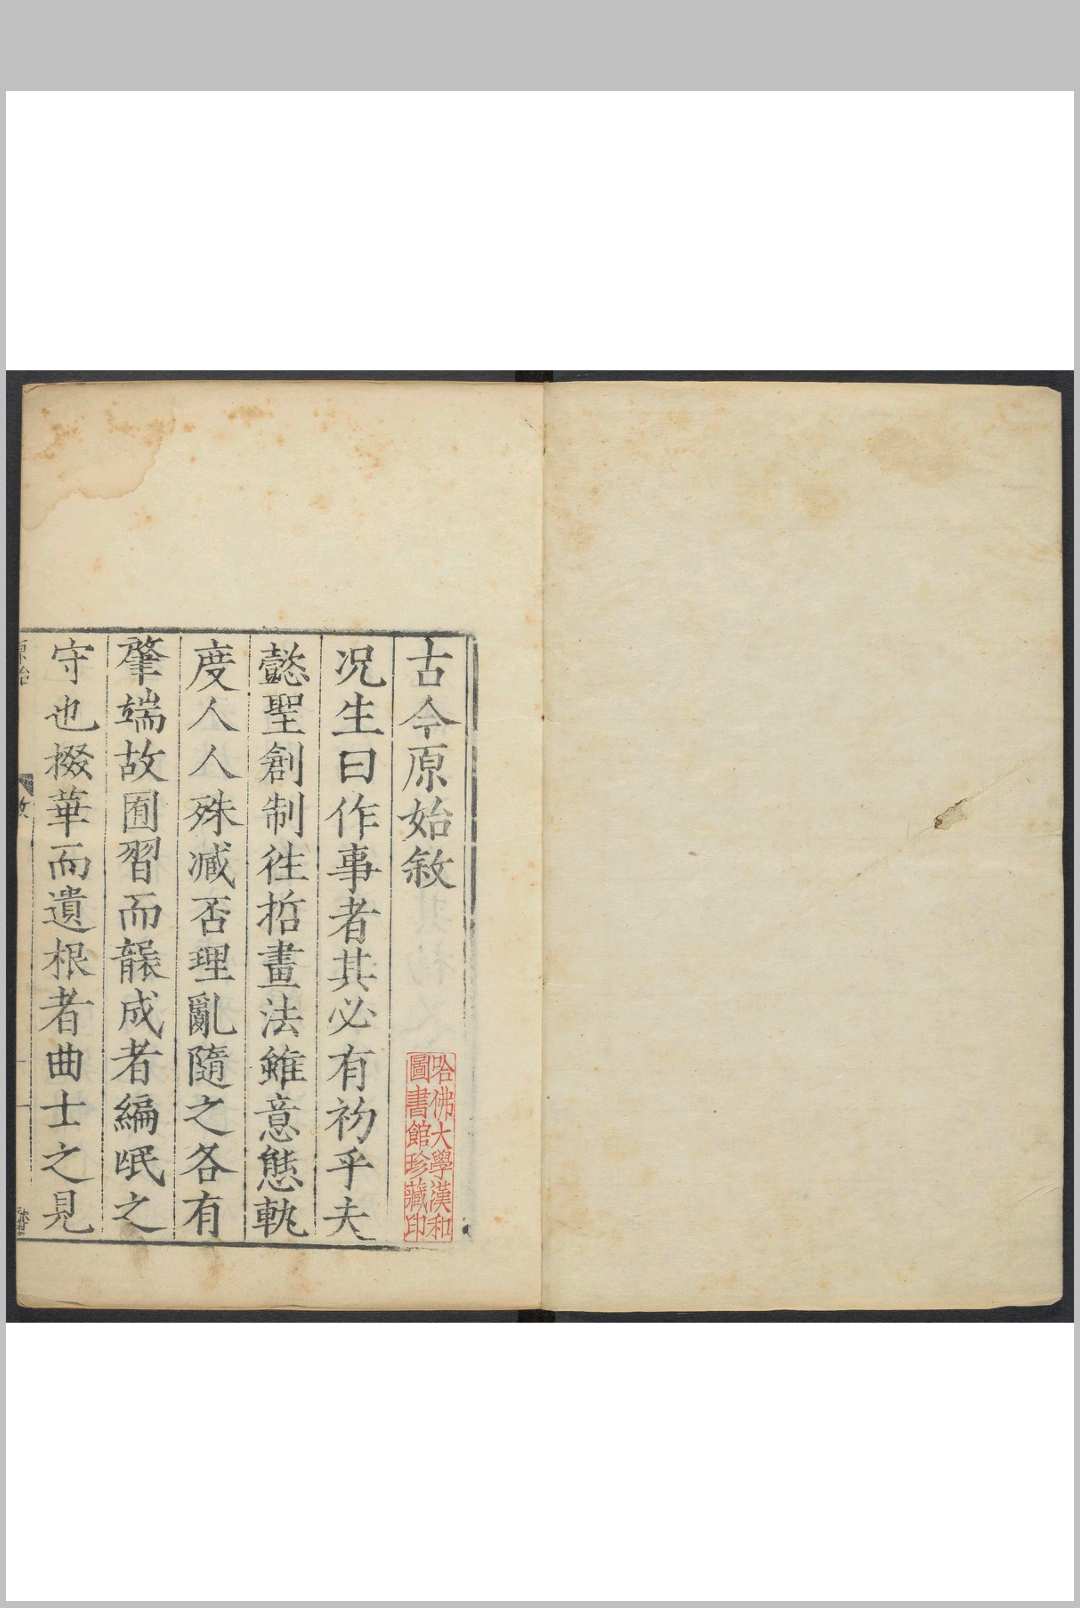 古今原始敘
况生曰作事者其必有初乎夫
懿聖創制徃哲畫法雖意態軌
度人人殊臧否理亂隨之各有
肇端故囿習而襲成者編氓之
守也掇華而遺根者曲士之見
哈佛大學漢和
圖書館珍藏印
原始